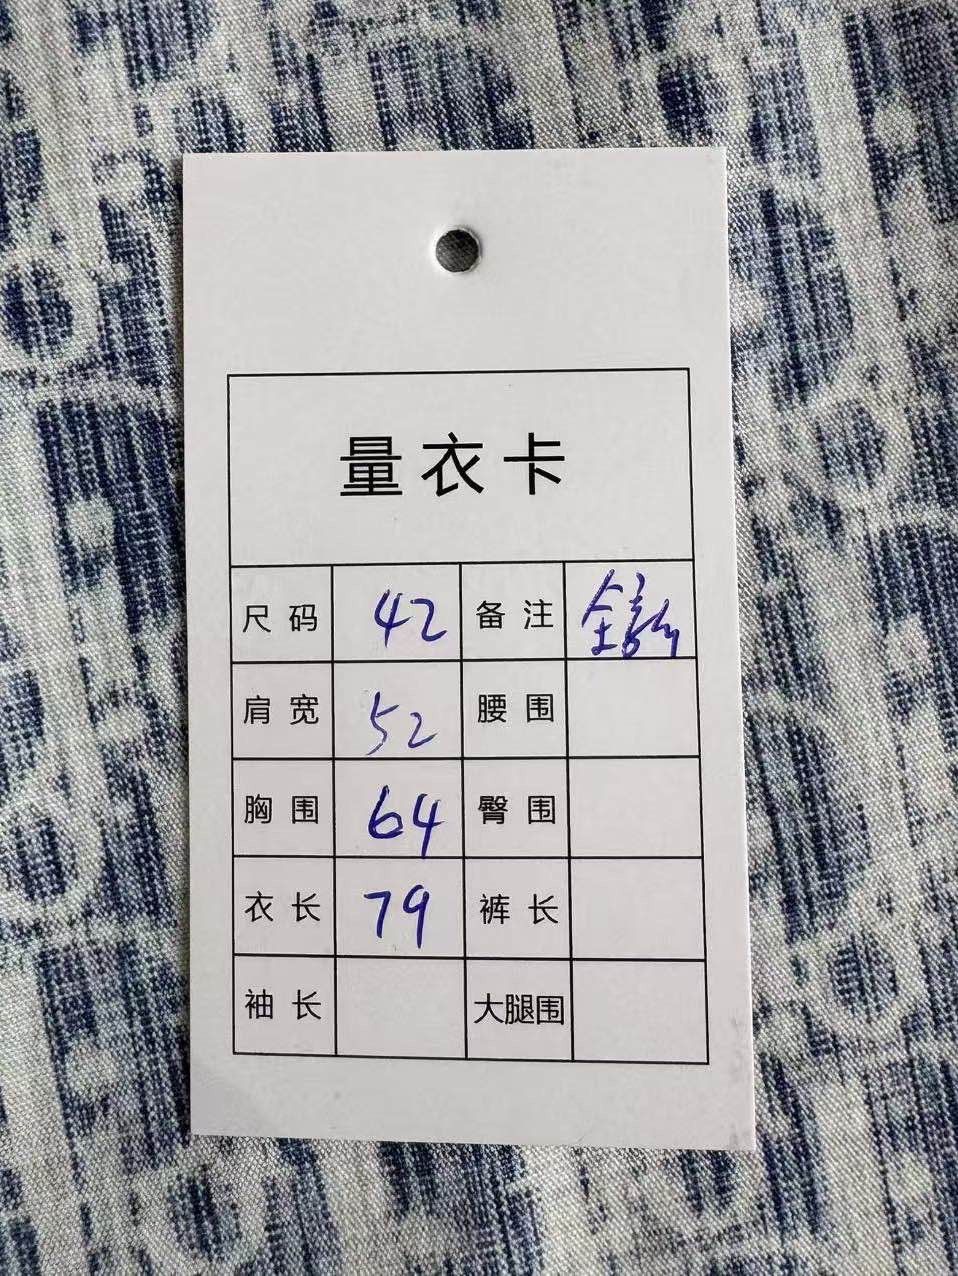 量衣卡
尺码 42 备注 全新
肩宽 52 腰围
胸围 64 臀围
衣长 79 裤长
袖长 大腿围